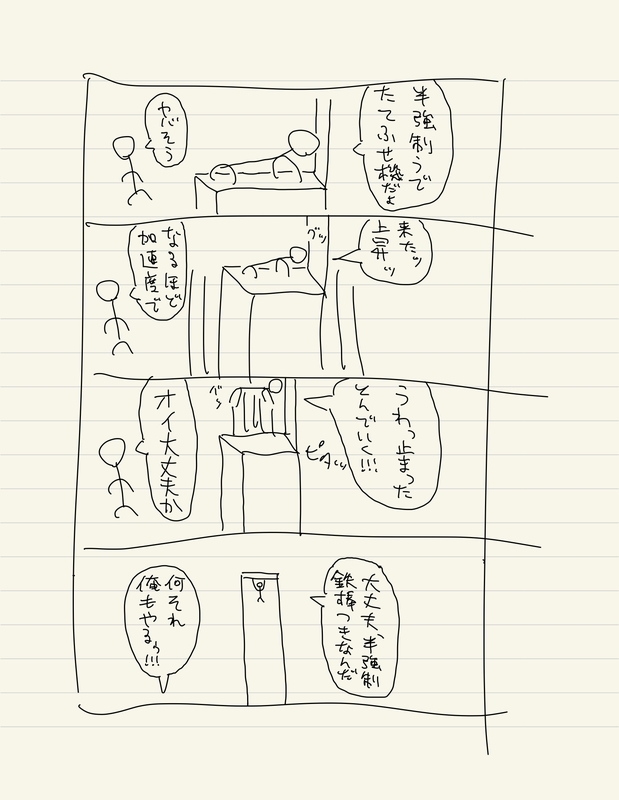 半強制うで
たてふせ機だよ
やばそう
来たッ
上昇ッ
グッ
なるほど
加速度で
うわっ止まった
とんでいく!!!
ピタッ
バッ
オイ大丈夫か
大丈夫、半強制
鉄棒つきなんだ
何それ
俺もやるぅ!!!